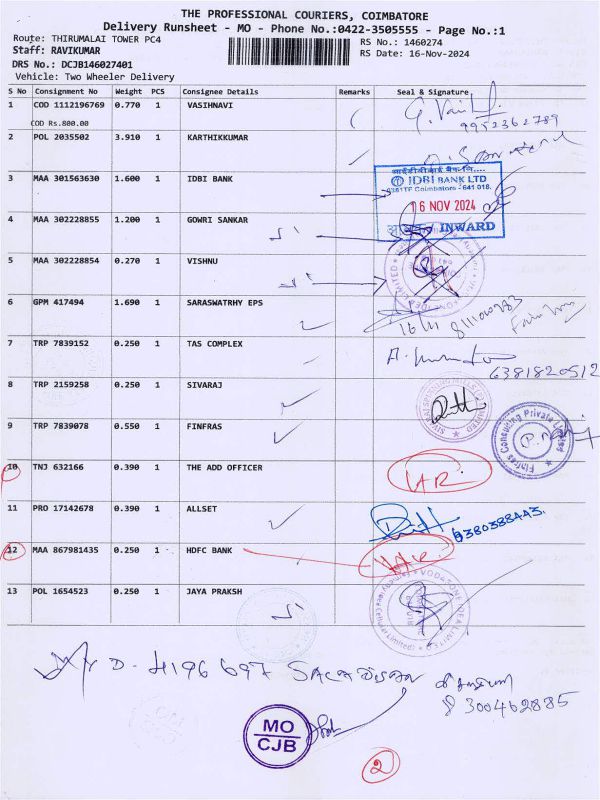 THE PROFESSIONAL COURIERS, COIMBATORE
Delivery Runsheet - MO - Phone No.:0422-3505555 - Page No.:1
Route: THIRUMALAI TOWER PC4
RS No.: 1460274
Staff: RAVIKUMAR
RS Date: 16-Nov-2024
DRS No.: DCJB146027401
Vehicle: Two Wheeler Delivery
S No Consignment No Weight PCS Consignee Details Remarks Seal & Signature
1 COD 1112196769 0.770 1 VASIHNAVI
COD Rs.800.00
9952362789
2 POL 2035502 3.910 1 KARTHIKKUMAR
3 MAA 301563630 1.600 1 IDBI BANK
IDBI BANK LTD
Coimbatore - 641 018.
16 NOV 2024
INWARD
4 MAA 302228855 1.200 1 GOWRI SANKAR
5 MAA 302228854 0.270 1 VISHNU
6 GPM 417494 1.690 1 SARASWATRHY EPS
16/11
7 TRP 7839152 0.250 1 TAS COMPLEX
6381820512
8 TRP 2159258 0.250 1 SIVARAJ
9 TRP 7839078 0.550 1 FINFRAS
Finfras Consulting Private Limited
10 TNJ 632166 0.390 1 THE ADD OFFICER
11 PRO 17142678 0.390 1 ALLSET
12 MAA 867981435 0.250 1 HDFC BANK
13 POL 1654523 0.250 1 JAYA PRAKSH
D- 4196 697
8300462885
MO
CJB
2